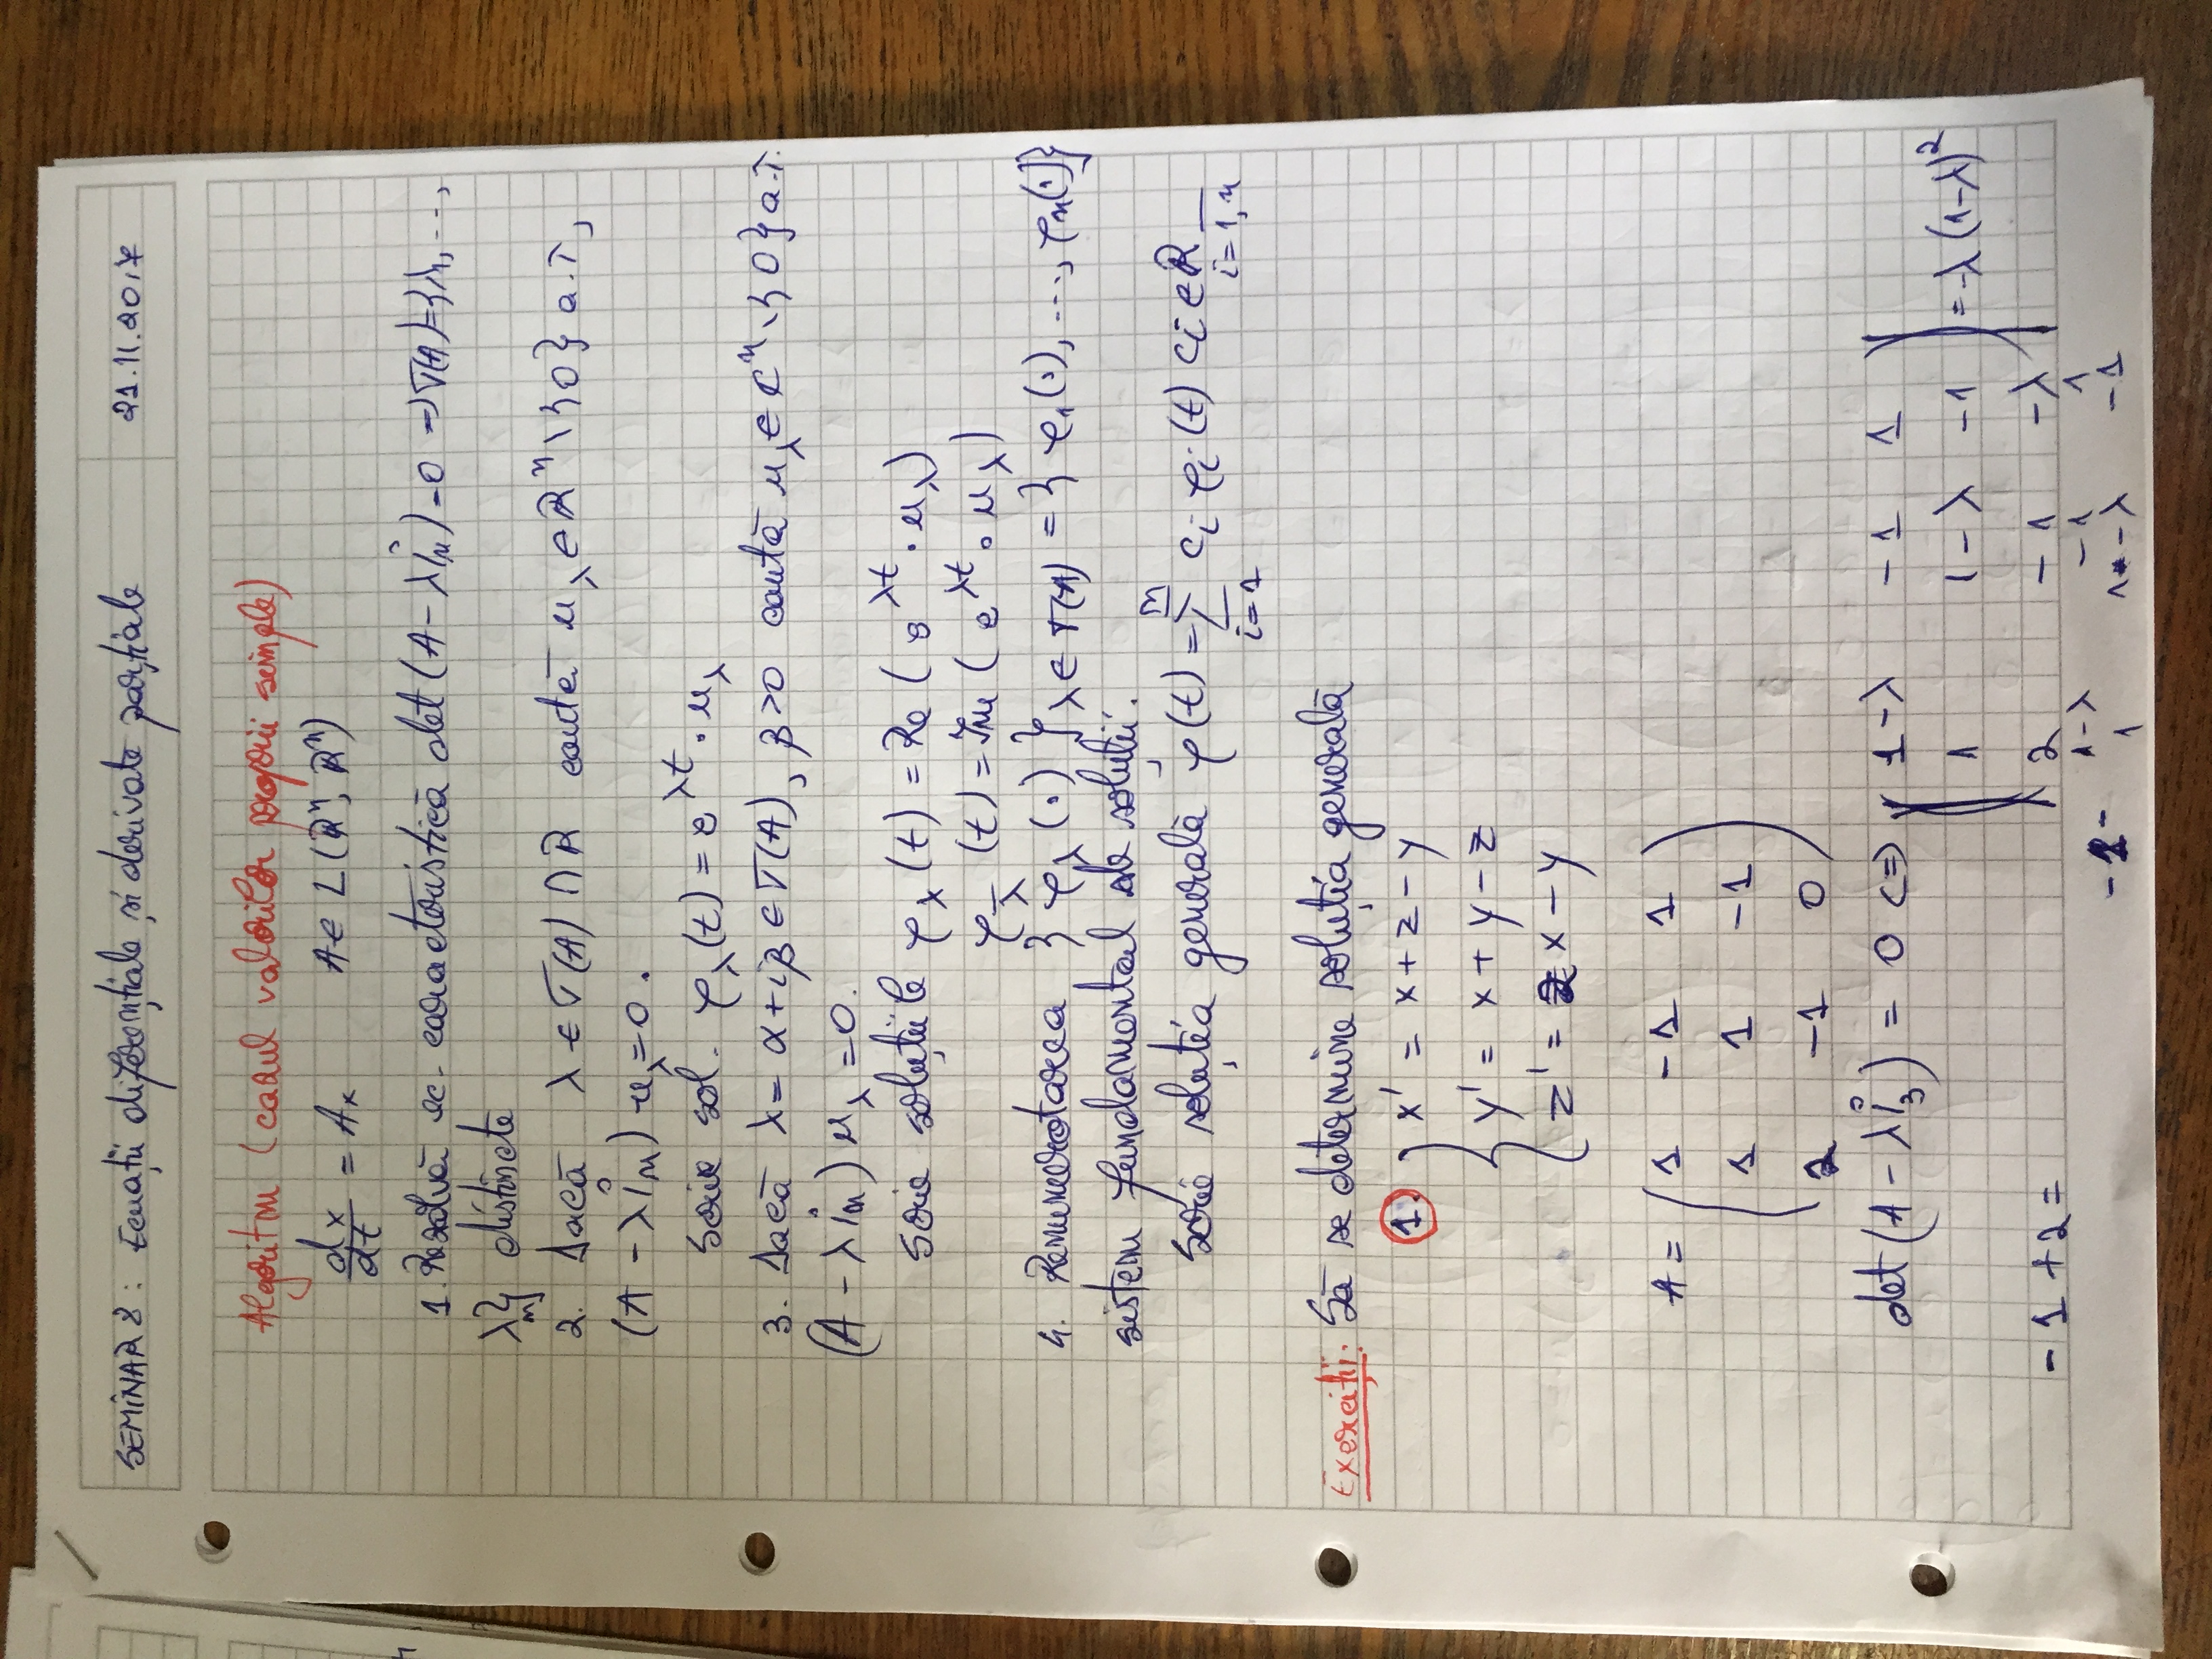 SEMINAR 8: Ecuații diferențiale și derivate parțiale 21.11.2017
Algoritm (cazul valorilor proprii simple)
dx/dt = Ax A ∈ L(ℝⁿ, ℝⁿ)
1. Rezolvă ec. caracteristică det(A - λIₙ) = 0 ⇒ σ(A) = {λ₁, ...,
λₙ} distincte
2. Dacă λ ∈ σ(A) ∩ ℝ caută u_λ ∈ ℝⁿ \ {0} a.î,
(A - λIₙ) u_λ = 0.
scrie sol. φ_λ(t) = e^{λt} · u_λ
3. Dacă λ = α + iβ ∈ σ(A), β > 0 caută u_λ ∈ ℂⁿ \ {0} a.î.
(A - λIₙ) u_λ = 0.
scrie soluțiile φ_λ(t) = Re (e^{λt} · u_λ)
φ_λ̄(t) = Im (e^{λt} · u_λ)
4. Renumerotarea {φ_λ(·)}_{λ ∈ σ(A)} = {φ₁(·), ..., φₙ(·)}
sistem fundamental de soluții.
scrie soluția generală φ(t) = ∑_{i=1}^{n} cᵢ φᵢ(t) cᵢ ∈ ℝ i = 1,n
Exerciții: Să se determine soluția generală
1. { x' = x + z - y
y' = x + y - z
z' = 2x - y
A = ( 1 -1 1
1 1 -1
2 -1 0 )
det(A - λI₃) = 0 ⇔ | 1-λ -1 1
1 1-λ -1 | = -λ(1-λ)²
-1 + 2 = 2 -1 -λ
1-λ -1 1
1 1-λ -1